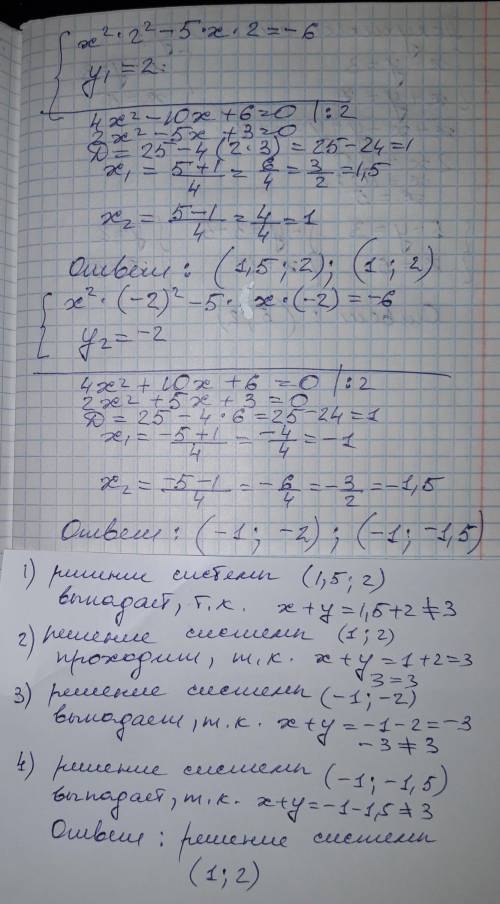 x²·2²-5·x·2=-6
y₁=2.
4x²-10x+6=0 |:2
2x²-5x+3=0
D=25-4(2·3)=25-24=1
x₁=(5+1)/4=6/4=3/2=1,5
x₂=(5-1)/4=4/4=1
Ответ: (1,5; 2); (1; 2)
x²·(-2)²-5·x·(-2)=-6
y₂=-2
4x²+10x+6=0 |:2
2x²+5x+3=0
D=25-4·6=25-24=1
x₁=(-5+1)/4=-4/4=-1
x₂=(-5-1)/4=-6/4=-3/2=-1,5
Ответ: (-1; -2); (-1; -1,5)
1) решение системы (1,5; 2)
выпадает, т.к. x+y=1,5+2≠3
2) решение системы (1; 2)
проходит, т.к. x+y=1+2=3
3=3
3) решение системы (-1; -2)
выпадает, т.к. x+y=-1-2=-3
-3≠3
4) решение системы (-1; -1,5)
выпадает, т.к. x+y=-1-1,5≠3
Ответ: решение системы
(1; 2)